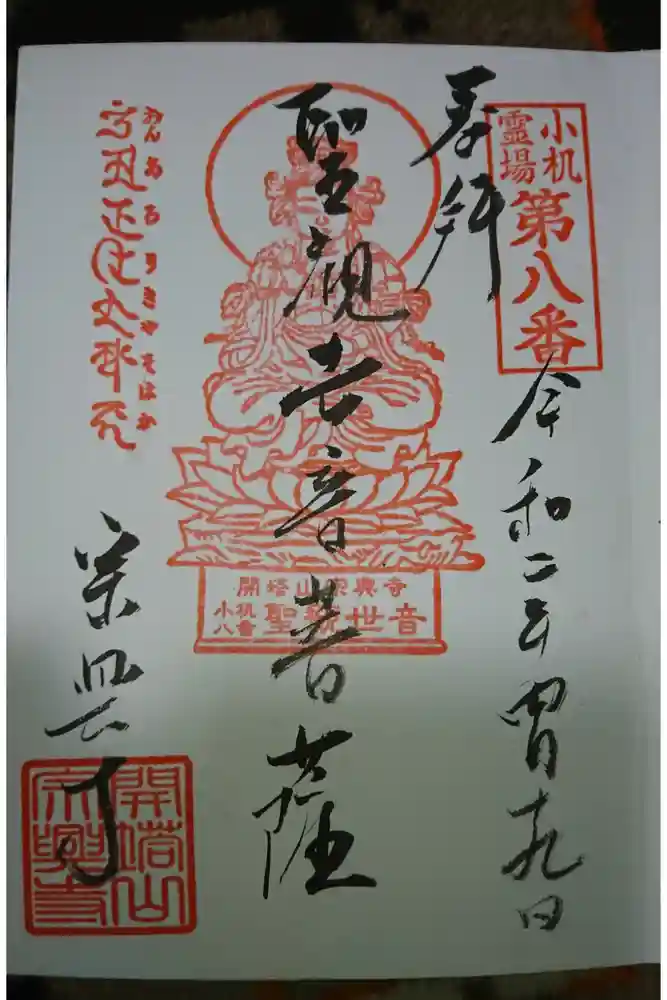 小机
霊場
第八番
奉拝
令和二年四月十九日
聖観世音菩薩
開塔山宗興寺
小机
八番
聖観世音
おんあろりきやそはか
宗興寺
開塔山
宗興寺